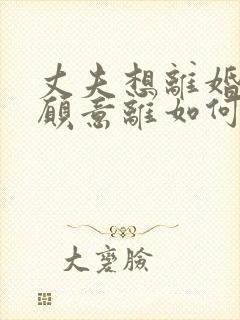 丈夫想離婚
願意離如何
大寶臉